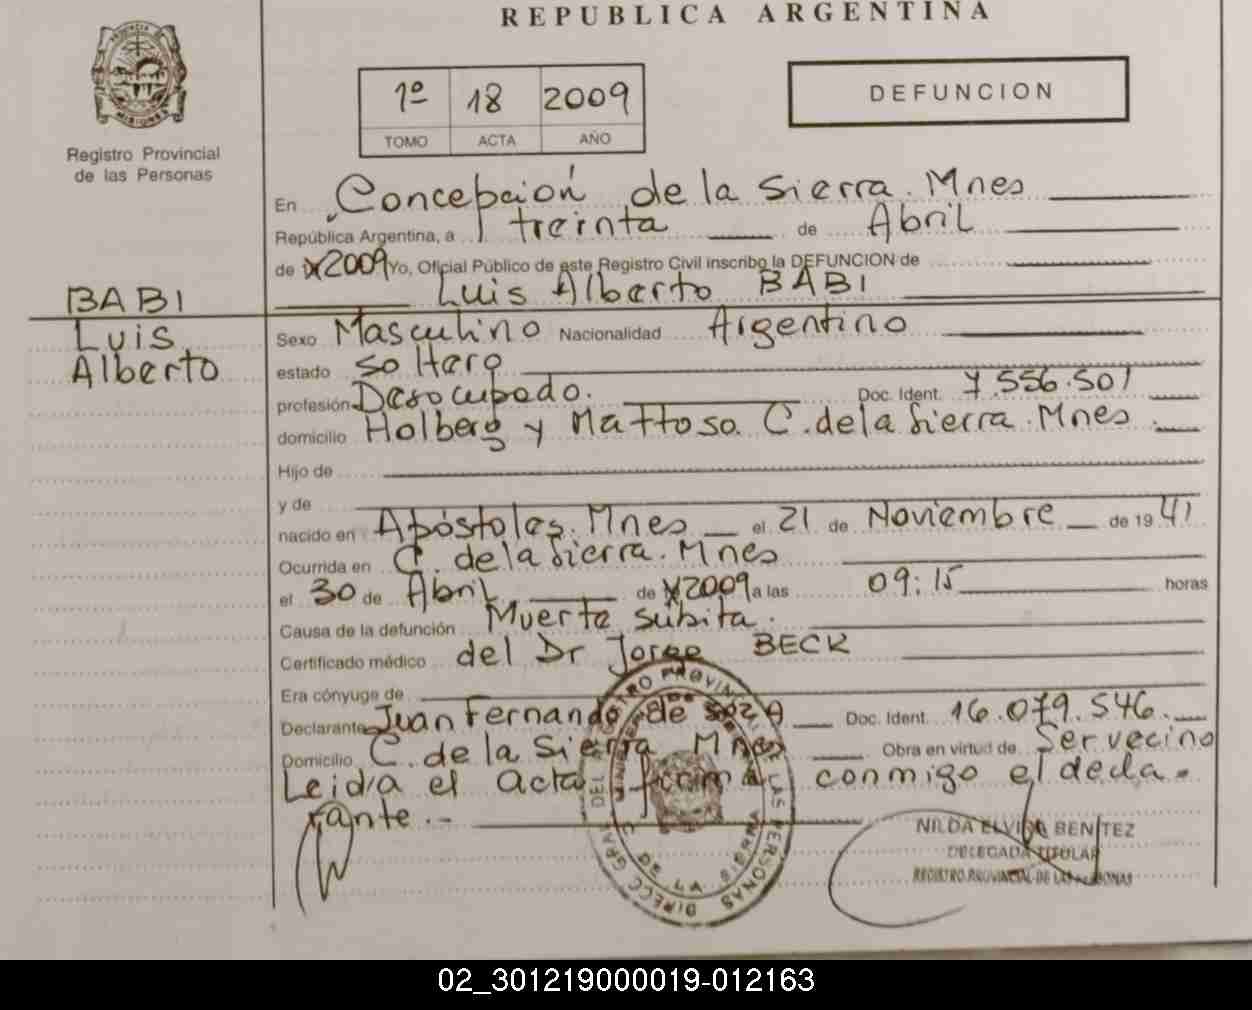 REPUBLICA ARGENTINA
PROVINCIA DE MISIONES
Registro Provincial
de las Personas
1º 18 2009
TOMO ACTA AÑO
DEFUNCION
En Concepción de la Sierra. Mnes
República Argentina, a treinta de Abril
de 2009 Yo, Oficial Público de este Registro Civil inscribo la DEFUNCION de
Luis Alberto BABI
BABI
Luis
Alberto
Sexo Masculino Nacionalidad Argentino
estado soltero
profesión Desocupado. Doc. Ident. 7.556.501
domicilio Holberg y Mattoso C. de la Sierra. Mnes.
Hijo de
y de
nacido en Apóstoles. Mnes el 21 de Noviembre de 19 41
Ocurrida en C. de la Sierra. Mnes
el 30 de Abril de 2009 a las 09:15 horas
Causa de la defunción Muerte subita.
Certificado médico del Dr Jorge BECK
Era cónyuge de
Declarante Juan Fernando de Doc. Ident. 16.079.546.
Domicilio C. de la Sierra Mnes Obra en virtud de Ser vecino
Leida el Acta firma conmigo el decla-
rante.-
DIRECC GRAL DEL REGISTRO PROVINCIAL DE LAS PERSONAS
DE LA SIERRA
NILDA ELVIRA BENITEZ
DELEGADA TITULAR
REGISTRO PROVINCIAL DE LAS PERSONAS
02_301219000019-012163